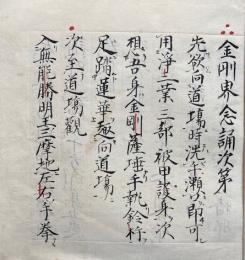 金剛界念誦次第
先欲向道場時洗手漱口印可
用淨三業三部被甲護身次
想吾身金剛薩埵手執鈴杵
足踏蓮華歩向道場
次至道場觀
入無能勝明王三摩地左右手拳